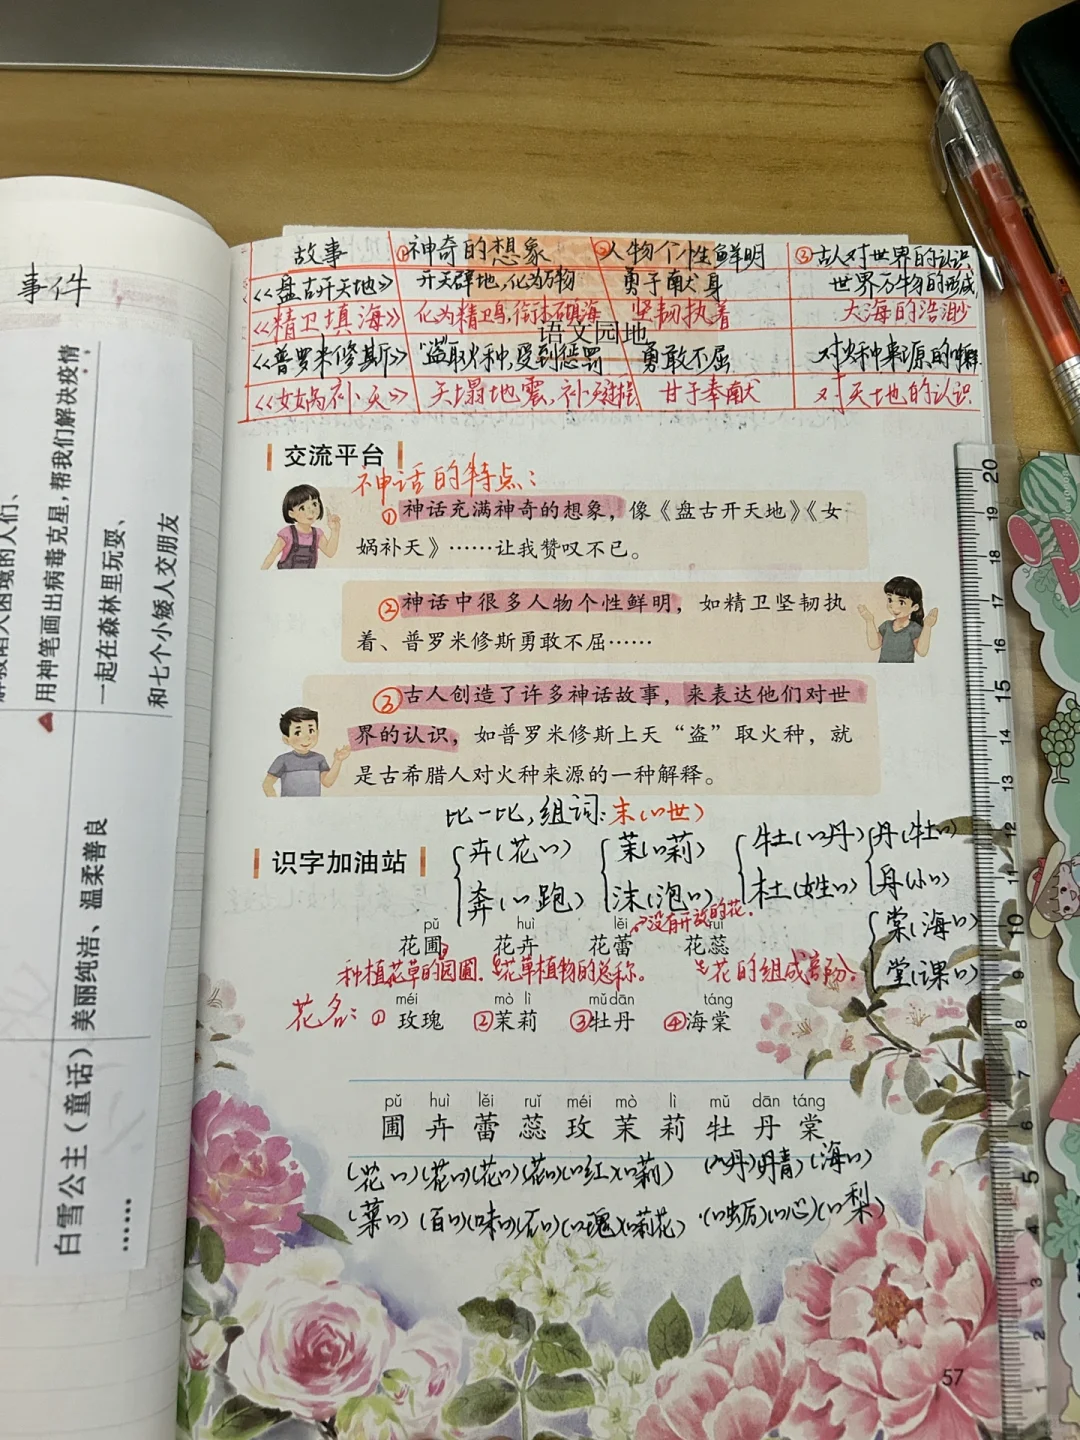 事件
解救陷入困境的人们、
用神笔画出病毒克星，帮我们解决疫情
一起在森林里玩耍、
和七个小矮人交朋友
美丽纯洁、温柔善良
白雪公主（童话）
……
故事 ①神奇的想象 ②人物个性鲜明 ③古人对世界的认识
《盘古开天地》 开天辟地，化为万物 勇于献身 世界万物的形成
《精卫填海》 化为精卫鸟，衔木石填海 坚韧执着 大海的浩渺
语文园地
《普罗米修斯》 “盗”取火种，受到惩罚 勇敢不屈 对火种来源的解释
《女娲补天》 天塌地震，补 甘于奉献 对天地的认识
交流平台
神话的特点：
①神话充满神奇的想象，像《盘古开天地》《女
娲补天》……让我赞叹不已。
②神话中很多人物个性鲜明，如精卫坚韧执
着、普罗米修斯勇敢不屈……
③古人创造了许多神话故事，来表达他们对世
界的认识，如普罗米修斯上天“盗”取火种，就
是古希腊人对火种来源的一种解释。
比一比，组词：末(〃世)
识字加油站
卉(花〃) 茉(〃莉) 牡(〃丹) 丹(牡〃)
奔(〃跑) 沫(泡〃) 杜(姓〃) 舟(小〃)
棠(海〃)
堂(课〃)
没有开放的花。
pǔ huì lěi ruǐ
花圃 花卉 花蕾 花蕊
种植花草的园圃。 花草植物的总称。 花的组成部分。
méi mò lì mǔ dān táng
花名：①玫瑰 ②茉莉 ③牡丹 ④海棠
pǔ huì lěi ruǐ méi mò lì mǔ dān táng
圃 卉 蕾 蕊 玫 茉 莉 牡 丹 棠
(花〃)(花〃)(花〃)(花〃)(〃红)(〃莉) (〃丹)(丹青)(海〃)
(菜〃) (百〃)(味〃)(石〃)(〃瑰)(〃莉花) (〃蛎)(〃心)(〃梨)
57